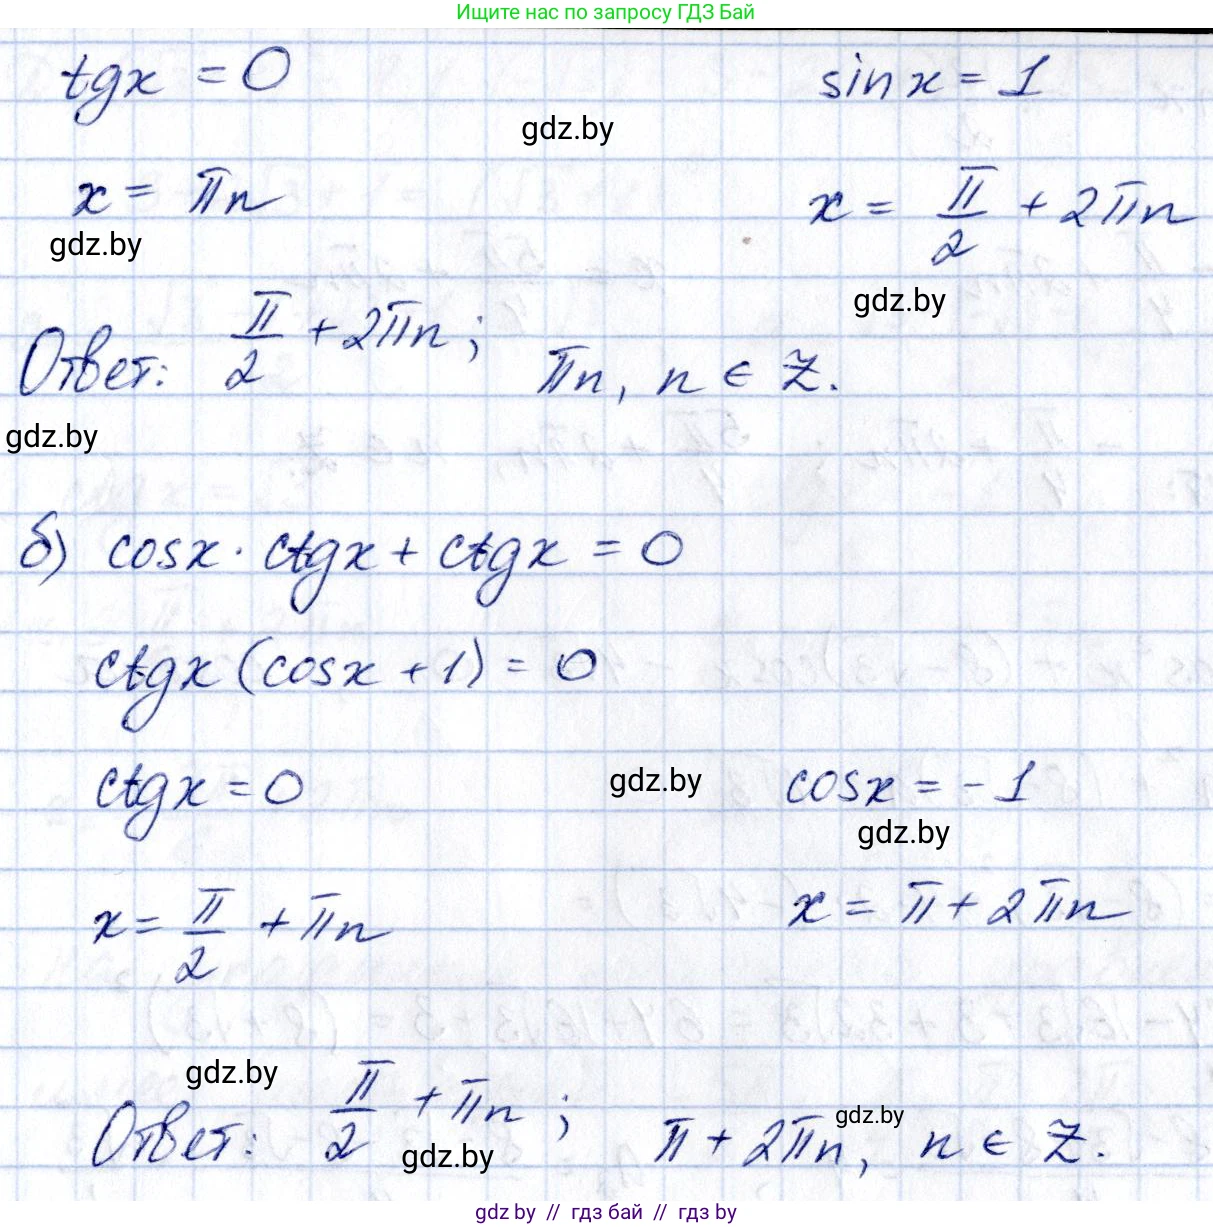 Ищите нас по запросу ГДЗ Бай
tgx = 0 sinx = 1
gdz.by
x = πn x = π/2 + 2πn
gdz.by
gdz.by
Ответ: π/2 + 2πn; πn, n ∈ Z.
gdz.by
б) cosx · ctgx + ctgx = 0
ctgx (cosx + 1) = 0
ctgx = 0 gdz.by cosx = -1
gdz.by
x = π/2 + πn x = π + 2πn
gdz.by
Ответ: π/2 + πn; π + 2πn, n ∈ Z.
gdz.by
gdz.by
gdz by // гдз бай // gdz by